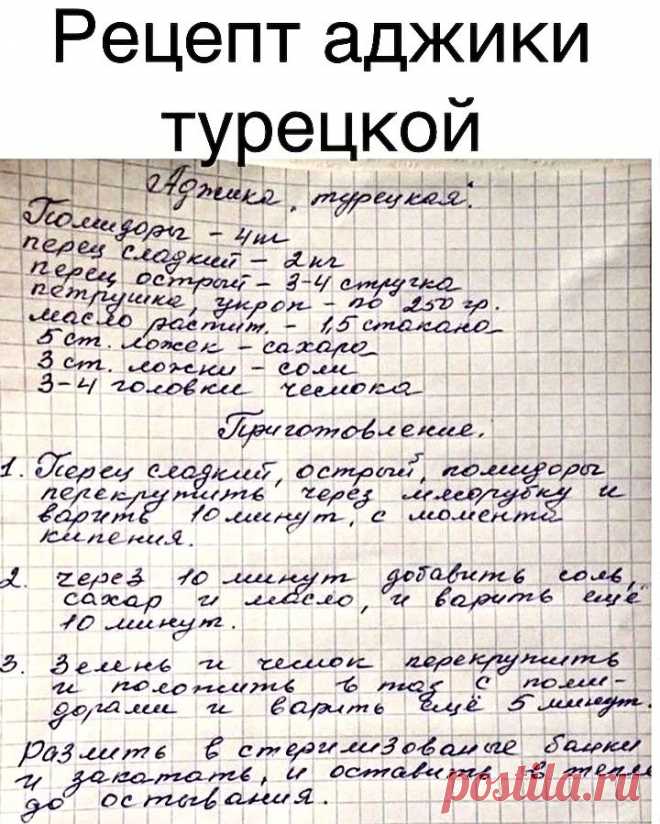 Рецепт аджики
турецкой
Аджика, турецкая.
Помидоры – 4 кг
перец сладкий – 2 кг
перец острый – 3-4 стручка
петрушка, укроп – по 250 гр.
масло растит. – 1,5 стакана
5 ст. ложек – сахара
3 ст. ложки – соли
3-4 головки чеснока
Приготовление.
1. Перец сладкий, острый, помидоры
перекрутить через мясорубку и
варить 10 минут, с момента
кипения.
2. через 10 минут добавить соль,
сахар и масло, и варить ещё
10 минут.
3. Зелень и чеснок перекрутить
и положить в таз с поми-
дорами и варить ещё 5 минут.
Разлить в стерилизованые банки
и закатать, и оставить в тепле
до остывания.
postila.ru